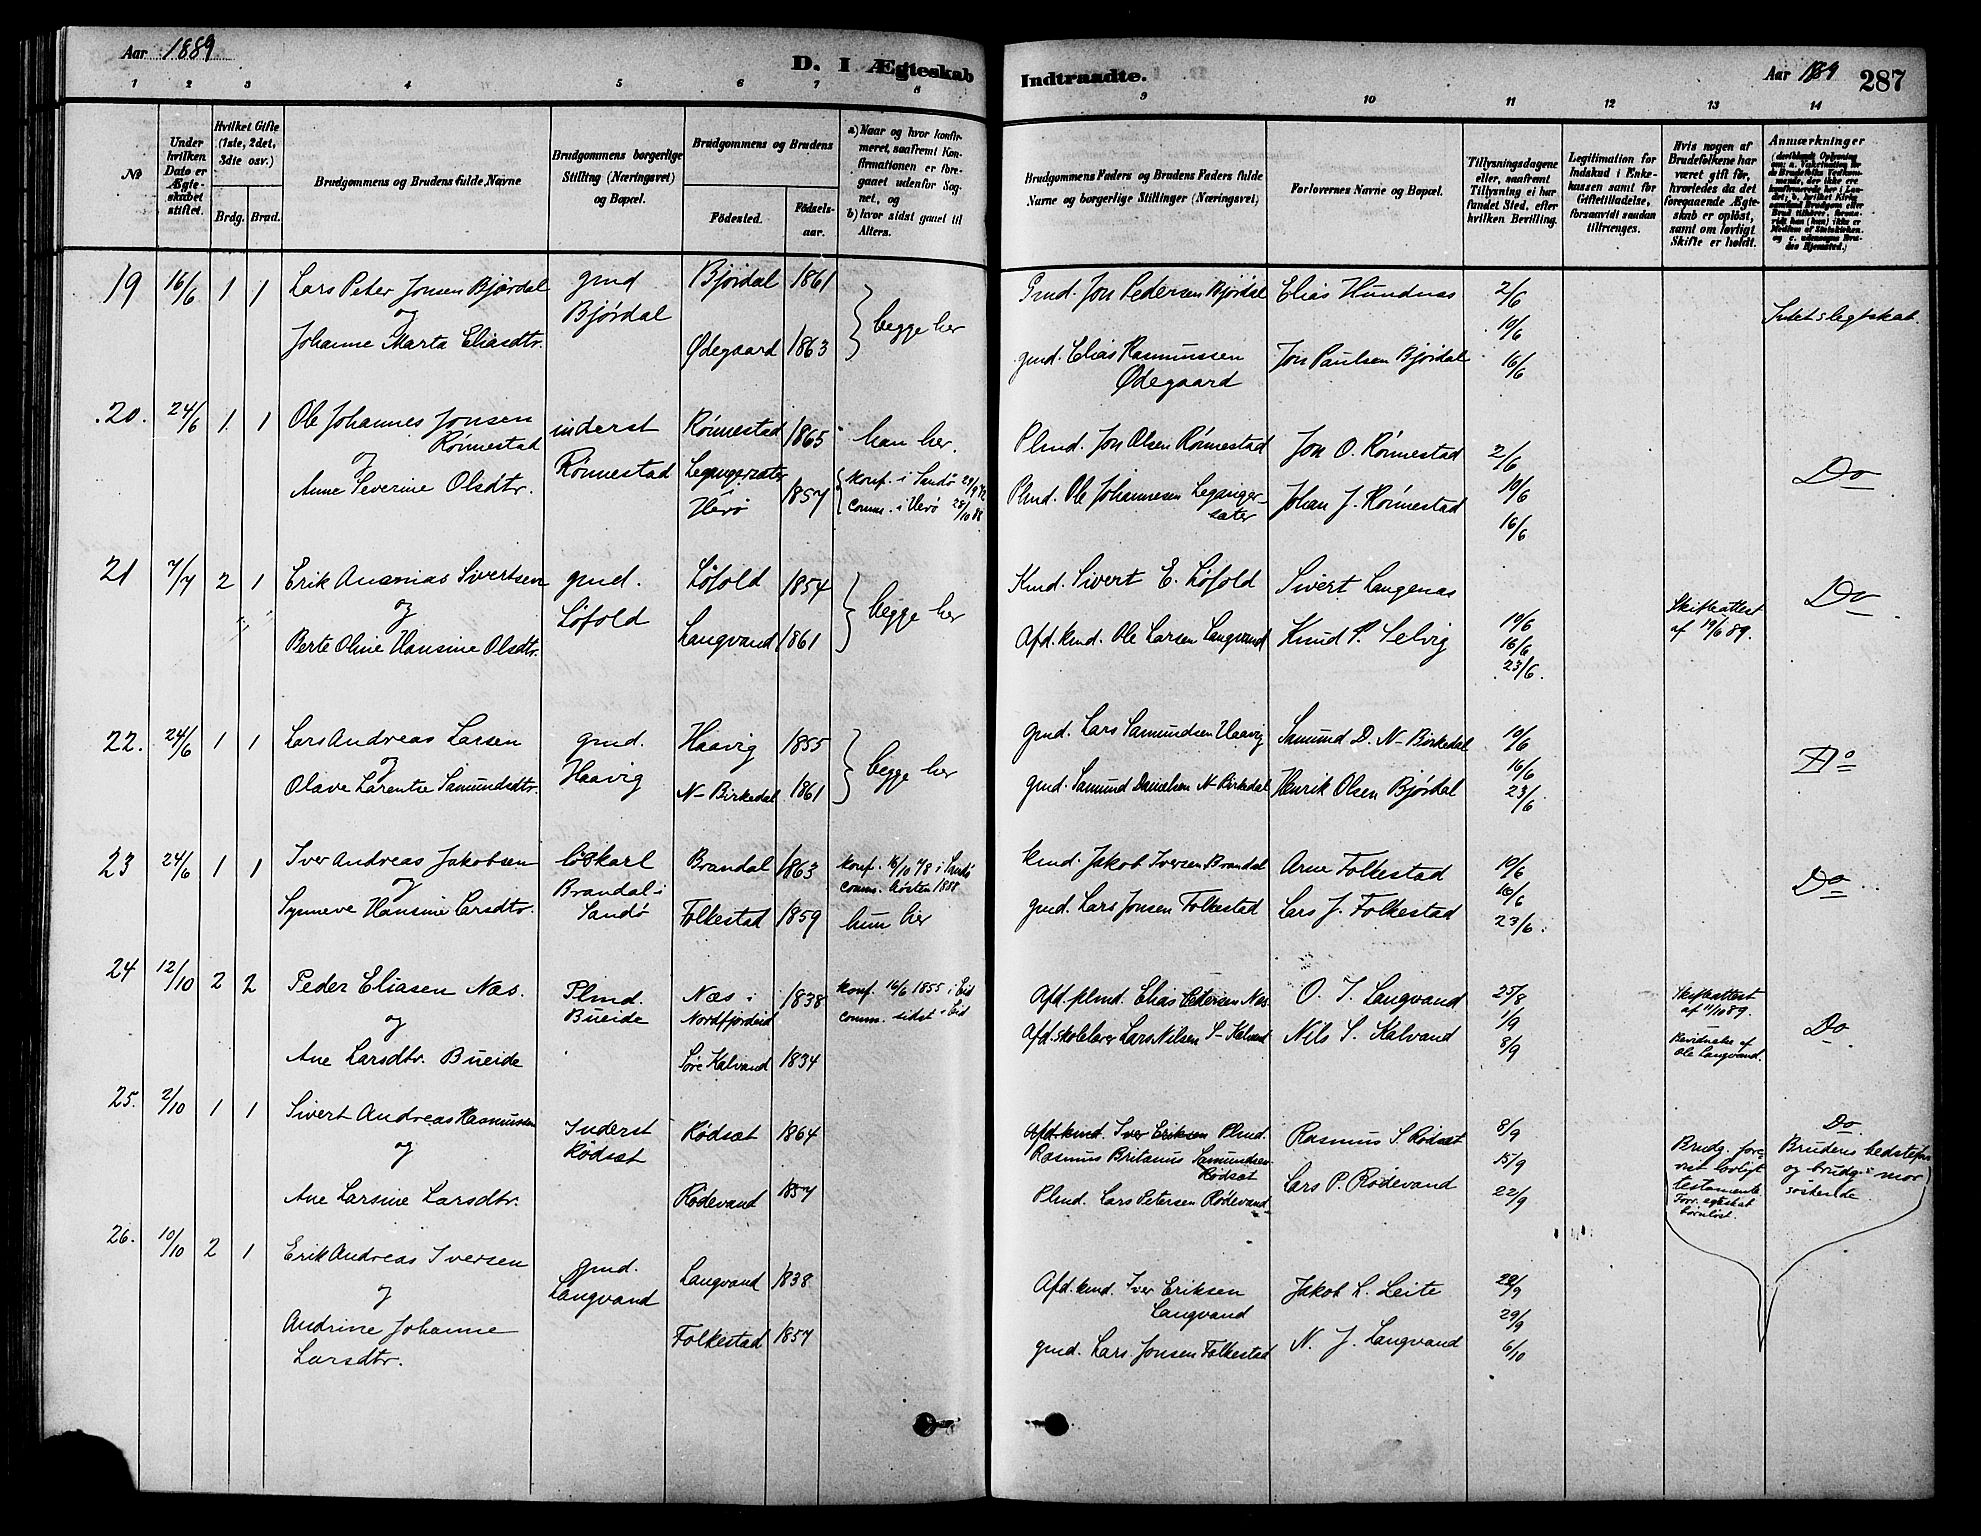 Aar 1889
D. I Ægteskab Indtraadte.
Aar 1889 287
1 2 3 4 5 6 7 8 9 10 11 12 13 14
No
Under hvilken Dato er Ægteskabet stiftet.
Hvilket Gifte (1ste, 2det, 3die osv.)
Brdg. Brud.
Brudgommens og Brudens fulde Navne
Brudgommens borgerlige Stilling (Næringsvei) og Bopæl.
Brudgommens og Brudens
Fødested. Fødselsaar.
a) Naar og hvor konfirmeret, saafremt Konfirmationen er foregaaet udenfor Sognet, og
b) hvor sidst gaaet til Alters.
Brudgommens Faders og Brudens Faders fulde Navne og borgerlige Stillinger (Næringsvei)
Forlovernes Navne og Bopæl.
Tillysningsdagene eller, saafremt Tillysning ei har fundet Sted, efter hvilken Bevilling.
Legitimation for Indskud i Enkekassen samt for Giftetilladelse, forsaavidt saadan tiltrænges.
Hvis nogen af Brudefolkene har været gift før, hvorledes da det foregaaende Ægteskab er opløst, samt om lovligt Skifte er holdt.
Anmærkninger
19 16/6 1 1 Lars Peter Jonsen Bjørdal gmd Bjørdal 1861 Gmd. Jon Pedersen Bjørdal Elias Hundnes 2/6
og Bjørdal begge her 10/6 Intet slegtskab.
Johanne Marta Eliasdtr. Ødegaard 1863 gmd. Elias Rasmussen Jon Paulsen Bjørdal 16/6
Ødegaard
20. 24/6 1 1 Ole Johannes Jonsen inderst Rönnestad 1865 han her. Plmd. Jon Olsen Rönnestad Jon O. Rönnestad 2/6
Rönnestad
og Rönnestad Legangersæter konf. i Sandö 29/9 72 10/6 Do
Anne Severine Olsdtr. Herö 1857 comm. i Herö 28/10 88 Plmd. Ole Johannesen Legangersæter Johan J. Rönnestad 16/6
21 7/7 2 1 Erik Ananias Sivertsen gmd. Löfold 1854 Kmd. Sivert E. Löfold Sivert Langenæs Do
og Löfold begge her 10/6 Skifteattest
Berte Oline Hansine Olsdtr. Langvand 1861 Afd. kmd. Ole Larsen Langvand Knud P. Selvig 16/6 af 19/6 89.
23/6.
22. 24/6 1 1 Lars Andreas Larsen gmd. Haavig 1855 gmd. Lars Samundsen Haavig Samund D. N-Birkedal 10/6
og Haavig begge her 16/6 Do
Olave Larentse Samundsdtr. N-Birkedal 1861 gmd. Samund Danielsen N-Birkedal Henrik Olsen Bjørdal 23/6
23 24/6 1 1 Iver Andreas Jakobsen Löskarl Brandal 1863 konf. 16/10 78 i Sandö kmd. Jakob Iversen Brandal Arne Folkestad 10/6
og Brandal i comm. hösten 1888 16/6 Do
Synneve Hansine Larsdtr. Sandö Folkestad 1859 hun her gmd. Lars Jonsen Folkestad Lars J. Folkestad 23/6.
24 12/10 2 2 Peder Eliasen Næs. Plmd. Næs i 1838 konf. 16/6 1855 i Eid Afd. plmd. Elias Petersen Næs. O. J. Langvand 25/8 Skifteattest
og Bueide Nordfjordeid comm. sidst i Eid 1/9 af 11/10 89. Do
Ane Larsdtr. Bueide Söre Kalvand 1834 Afd. skolelærer Lars Nilsen S-Kalvand Nils S. Kalvand 8/9 Bevidnelse af
Ole Langvand.
25. 2/10 1 1 Sivert Andreas Rasmussen Inderst Rödsæt 1864 Afd. kmd. Iver Eriksen Plmd. Rasmus S. Rödsæt 8/9 Do
og Rödsæt Rasmus Britanus Samundsen 15/9 Brudg. for- Brudens bedstefar
Rödsæt vist lovligt og brudg.s mor
Ane Larsine Larsdtr. Rödevand 1857 Plmd. Lars Petersen Rödevand Lars P. Rödevand 22/9 testamente söskende.
Forr. egteskab
börnlöst.
26. 10/10 2 1 Erik Andreas Iversen gmd. Langvand 1838 Afd. kmd. Iver Eriksen Jakob L. Leite 22/9
og Langvand Langvand 29/9
Andrine Johanne Folkestad 1857 gmd. Lars Jonsen Folkestad N. J. Langvand 6/10
Larsdtr.